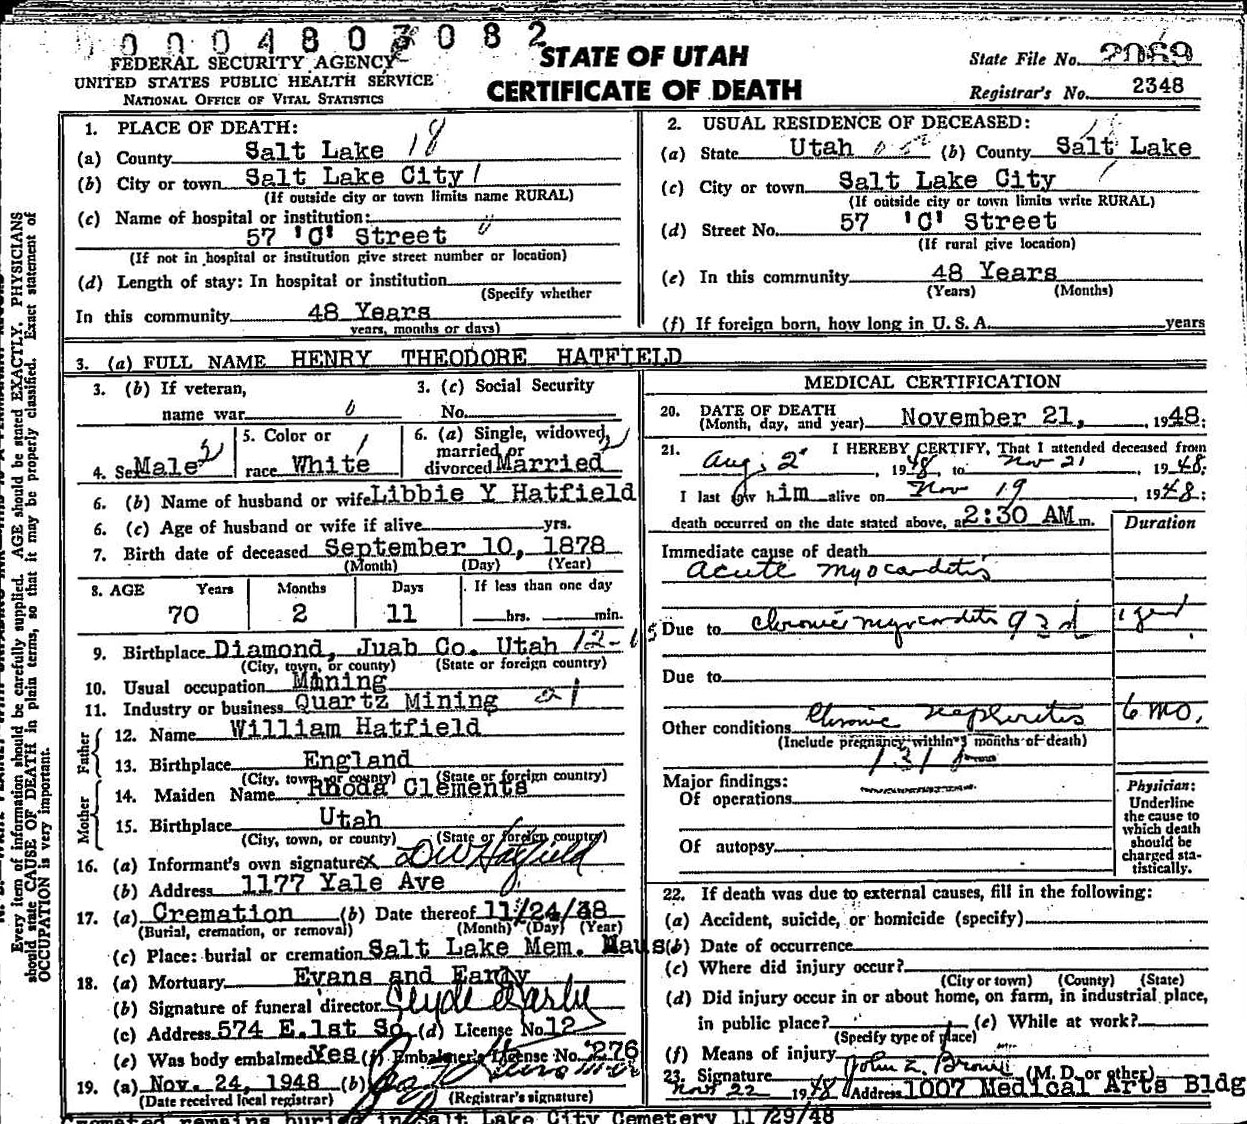 0 0 0 4 8 0 3 0 8 2
FEDERAL SECURITY AGENCY
UNITED STATES PUBLIC HEALTH SERVICE
NATIONAL OFFICE OF VITAL STATISTICS
STATE OF UTAH
CERTIFICATE OF DEATH
State File No. 2069
Registrar's No. 2348
1. PLACE OF DEATH:
(a) County Salt Lake 18
(b) City or town Salt Lake City 1
(If outside city or town limits name RURAL)
(c) Name of hospital or institution:
57 'C' Street
(If not in hospital or institution give street number or location)
(d) Length of stay: In hospital or institution
(Specify whether
In this community 48 Years
years, months or days)
2. USUAL RESIDENCE OF DECEASED:
(a) State Utah (b) County Salt Lake
(c) City or town Salt Lake City
(If outside city or town limits write RURAL)
(d) Street No. 57 'C' Street
(If rural give location)
(e) In this community 48 Years
(Years) (Months)
(f) If foreign born, how long in U. S. A. years
3. (a) FULL NAME HENRY THEODORE HATFIELD
3. (b) If veteran,
name war
3. (c) Social Security
No.
4. Sex Male
5. Color or
race White
6. (a) Single, widowed,
married or
divorced Married
6. (b) Name of husband or wife Libbie Y Hatfield
6. (c) Age of husband or wife if alive yrs.
7. Birth date of deceased September 10, 1878
(Month) (Day) (Year)
8. AGE Years Months Days If less than one day
70 2 11 hrs. min.
9. Birthplace Diamond, Juab Co. Utah
(City, town, or county) (State or foreign country)
10. Usual occupation Mining
11. Industry or business Quartz Mining
Father
12. Name William Hatfield
13. Birthplace England
(City, town, or county) (State or foreign country)
Mother
14. Maiden Name Rhoda Clements
15. Birthplace Utah
(City, town, or county) (State or foreign country)
16. (a) Informant's own signature x D W Hatfield
(b) Address 1177 Yale Ave
17. (a) Cremation (b) Date thereof 11/24/48
(Burial, cremation, or removal) (Month) (Day) (Year)
(c) Place: burial or cremation Salt Lake Mem. Maus
18. (a) Mortuary Evans and Early
(b) Signature of funeral director Clyde Early
(c) Address 574 E.1st So (d) License No. 12
(e) Was body embalmed Yes (f) Embalmer's License No. 276
19. (a) Nov. 24, 1948 (b)
(Date received local registrar) (Registrar's signature)
Cremated remains buried in Salt Lake City Cemetery 11/29/48
MEDICAL CERTIFICATION
20. DATE OF DEATH
(Month, day, and year) November 21, 1948;
21. I HEREBY CERTIFY, That I attended deceased from
Aug. 2, 1948 to Nov 21, 1948;
I last saw him alive on Nov 19, 1948;
death occurred on the date stated above, at 2:30 AM m.
Duration
Immediate cause of death
Acute myocarditis
Due to chronic myocarditis 93d 1 year
Due to
Other conditions Chronic nephritis 6 mo.
(Include pregnancy within 3 months of death)
131
Major findings:
Of operations
Of autopsy
Physician:
Underline
the cause to
which death
should be
charged sta-
tistically.
22. If death was due to external causes, fill in the following:
(a) Accident, suicide, or homicide (specify)
(b) Date of occurrence
(c) Where did injury occur?
(City or town) (County) (State)
(d) Did injury occur in or about home, on farm, in industrial place,
in public place? (e) While at work?
(Specify type of place)
(f) Means of injury
23. Signature John Z. Brown (M. D. or other)
Nov 22 1948 Address 1007 Medical Arts Bldg
Every item of information should be carefully supplied. AGE should be stated EXACTLY. PHYSICIANS
should state CAUSE OF DEATH in plain terms, so that it may be properly classified. Exact statement of
OCCUPATION is very important.